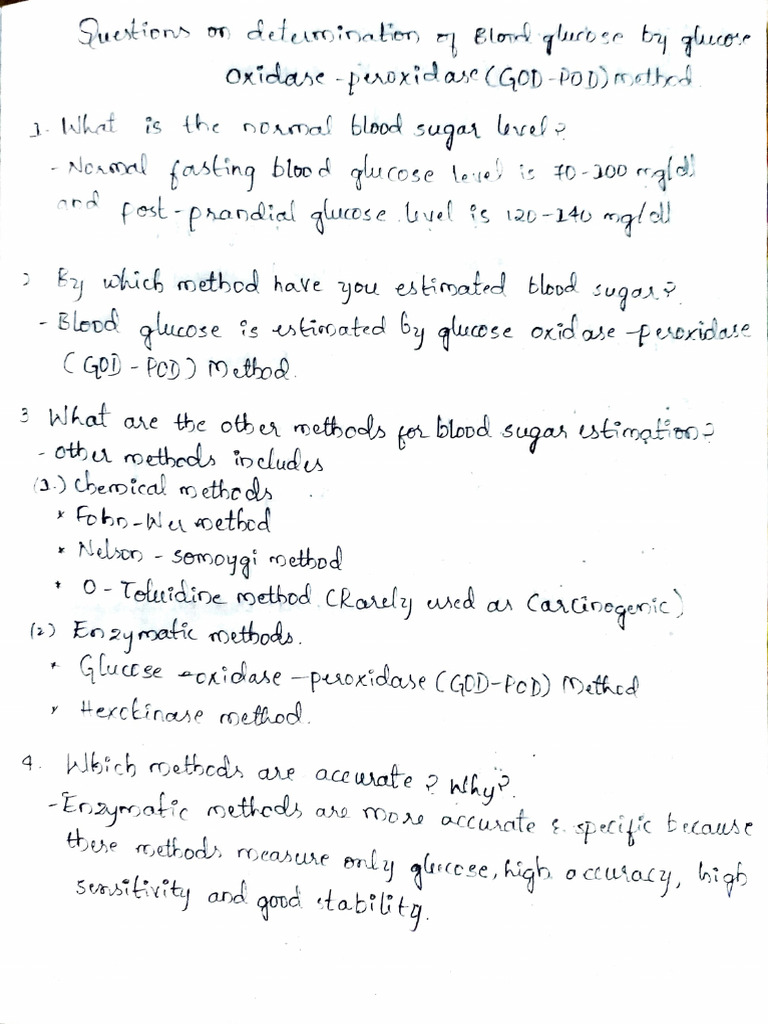 Questions on determination of Blood glucose by glucose
oxidase-peroxidase (GOD-POD) method.
1. What is the normal blood sugar level?
- Normal fasting blood glucose level is 70-100 mg/dl
and post-prandial glucose level is 120-140 mg/dl
2 By which method have you estimated blood sugar?
- Blood glucose is estimated by glucose oxidase-peroxidase
(GOD-POD) Method.
3 What are the other methods for blood sugar estimation?
- other methods includes
(1.) chemical methods
* Folin-Wu method
* Nelson-somoygi method
* O-Toluidine method (Rarely used as Carcinogenic)
(2) Enzymatic methods.
* Glucose-oxidase-peroxidase (GOD-POD) Method
* Hexokinase method.
4. Which methods are accurate? Why?
- Enzymatic methods are more accurate & specific because
these methods measure only glucose, high accuracy, high
sensitivity and good stability.